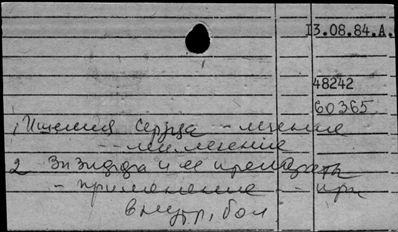 13.08.84.А.
48242
60365
1, Ишемия сердца - лечение
- - лечение
2 и ее препараты
- применение - при
внутр, бол.